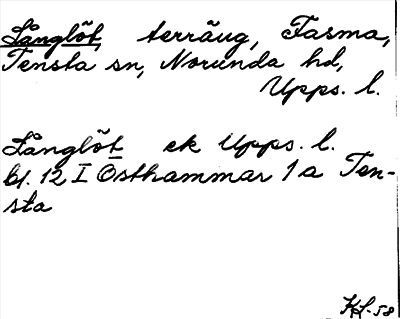 Långlöt, terräng, Fasma,
Tensta sn, Norunda hd,
Upps. l.
Långlöt ek Upps. l.
bl. 12 I Östhammar 1a Ten-
sta
KL-58